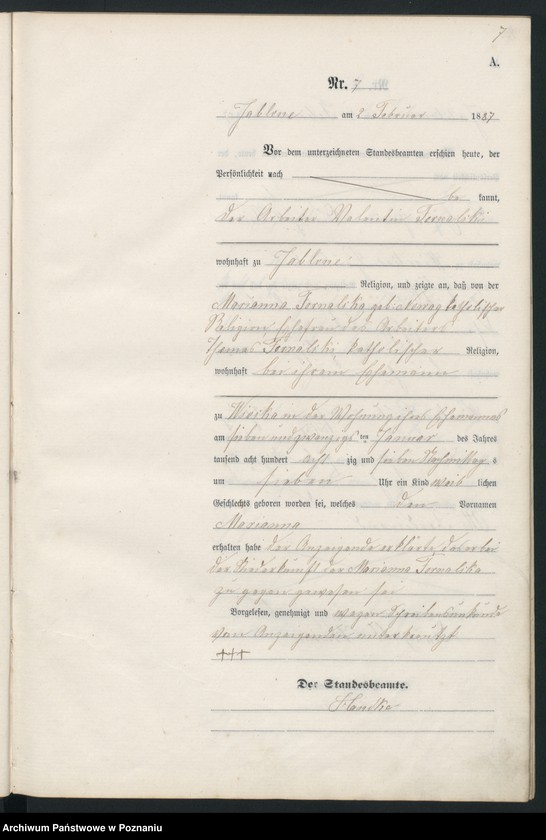 7
A.
Nr. 7
Jablone am 2 Februar 1887
Vor dem unterzeichneten Standesbeamten erschien heute, der
Persönlichkeit nach
be kannt,
der Arbeiter Valentin
wohnhaft zu Jablone
Religion, und zeigte an, daß von der
Marianna geb. katholischer
Religion Ehefrau des Arbeiters
Thomas katholischer Religion,
wohnhaft bei ihrem Ehemann
zu in der Wohnung ihres Ehemannes
am sieben und zwanzigsten Januar des Jahres
tausend acht hundert acht zig und sieben Nachmittags
um sieben Uhr ein Kind weib lichen
Geschlechts geboren worden sei, welches den Vornamen
Marianna
erhalten habe der Anzeigende erklärte, daß er bei
der Niederkunft der Marianna
zu gegen gewesen sei
Vorgelesen, genehmigt und wegen
vom Anzeigenden unterkreuzt
+++
Der Standesbeamte.
Archiwum Państwowe w Poznaniu